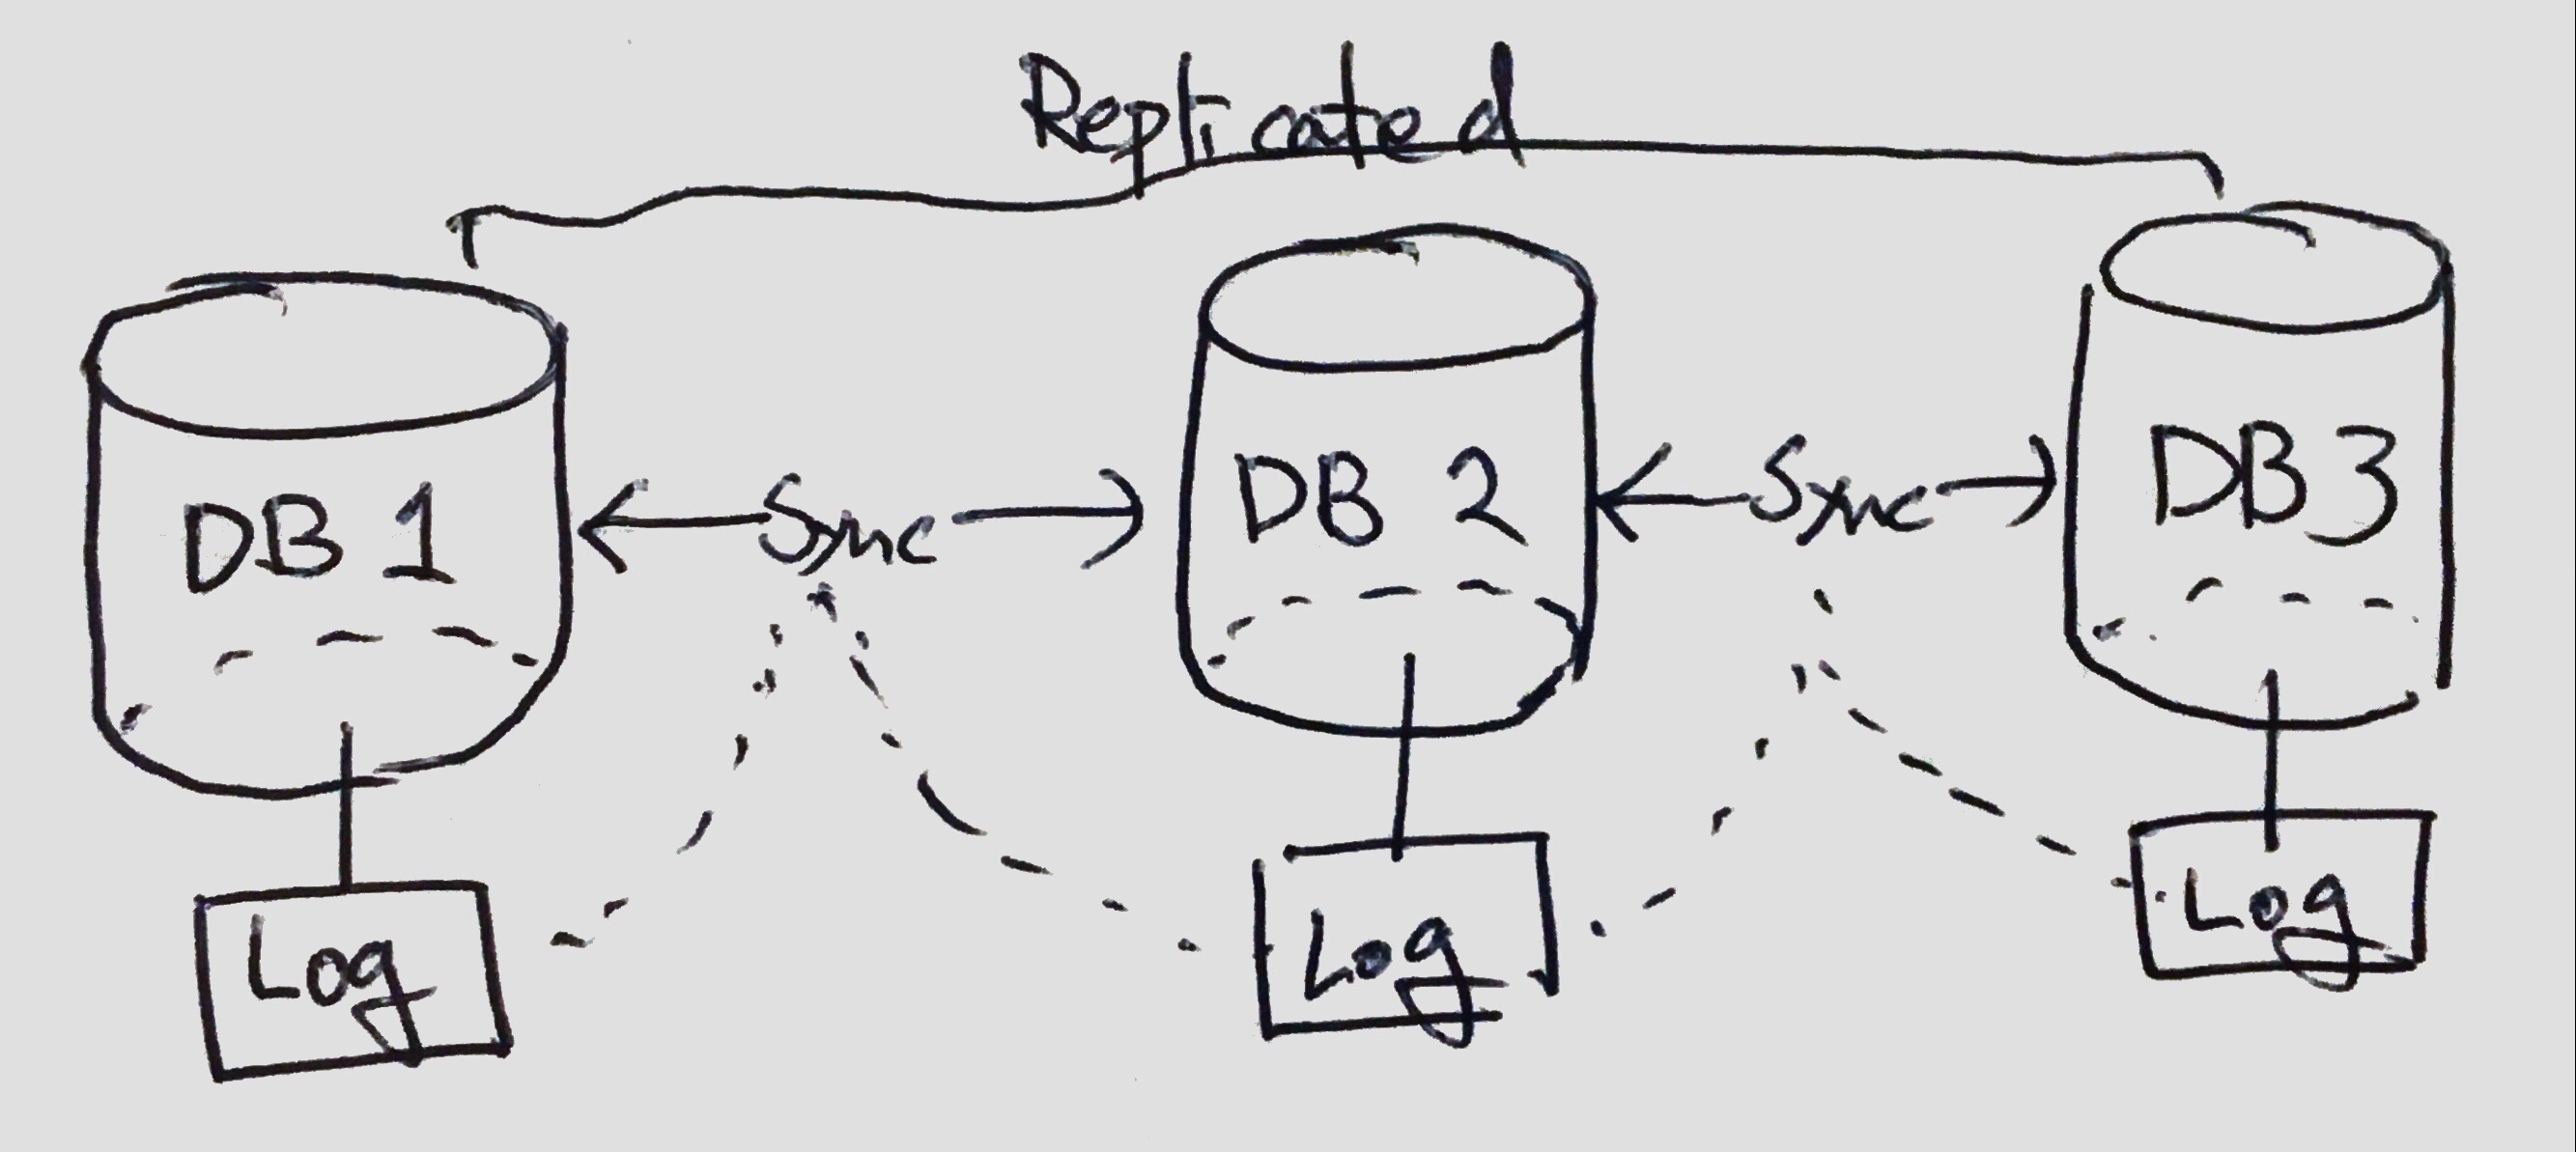 Replicated
DB 1
Sync
DB 2
Sync
DB 3
Log
Log
Log